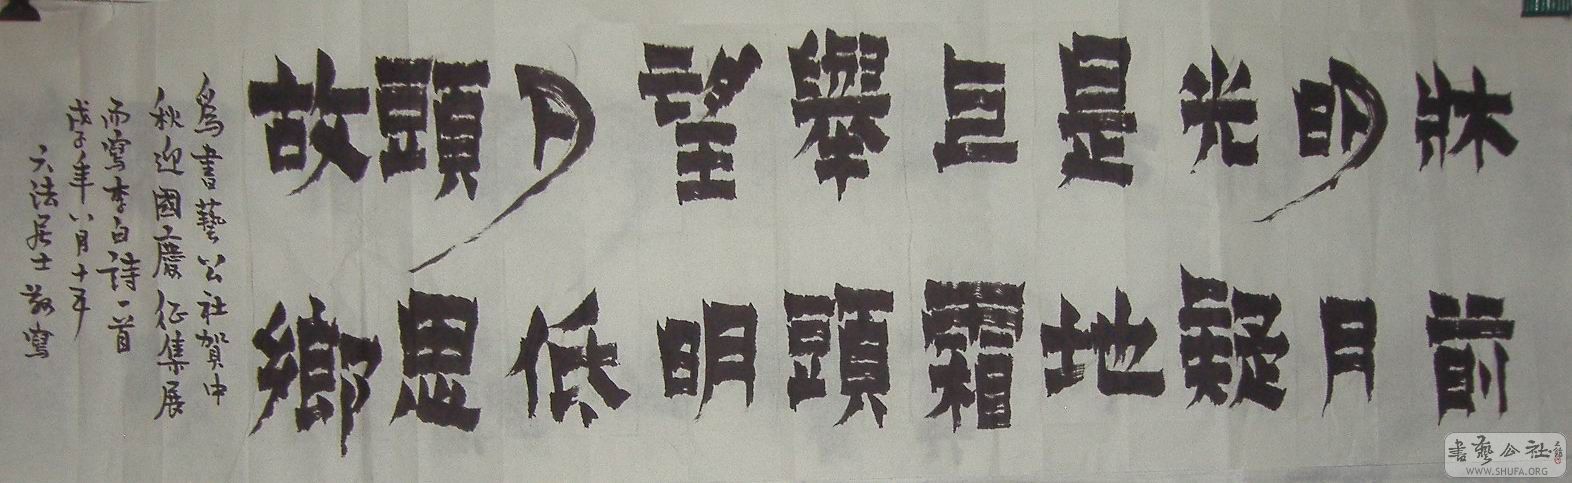 牀前
明月
光疑
是地
上霜
舉頭
望明
月低
頭思
故鄉
爲書藝公社賀中
秋迎國慶征集展
而寫李白詩一首
戊子年八月十
六法居士敬寫
書藝公社
WWW.SHUFA.ORG